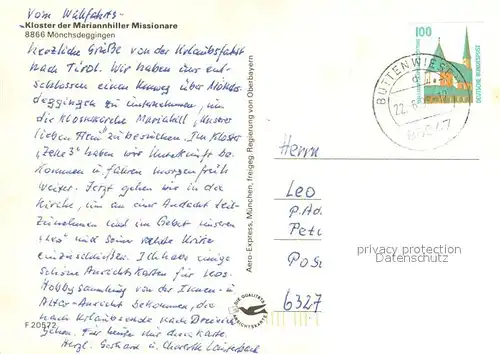 Vom Wallfahrts-
Kloster der Mariannhiller Missionare
8866 Mönchsdeggingen
herzliche Grüße von der Urlaubsfahrt
nach Tirol. Wir haben uns ent-
schlossen einen Umweg über Mönchs-
deggingen zu unternehmen, um
die Klosterkirche Mariahilf, "Unserer
lieben Frau" zu besuchen. Im Kloster
haben wir Unterkunft be-
kommen u. fahren morgen früh
weiter. Jetzt gehen wir in die
Kirche, um an einer Andacht teil-
zunehmen und im Gebet unseren
"Leo" und seine
einzuschließen. Ich habe einige
schöne Ansichtskarten für Leos
Hobbysammlung von der Innen- u.
Altar-Ansicht bekommen, die
nach Urlaubsende nach
gehen. Für heute nur diese Karte.
Herzl. Gerhard u.
F 20572
Aero-Express, München, freigeg. Regierung von Oberbayern
DIE QUALITÄTS
ANSICHTSKARTE
100
DEUTSCHE BUNDESPOST
BUTTENWIESEN
22.
Herrn
Leo
P.Ad.
Pet
Pos
6327
privacy protection
Datenschutz